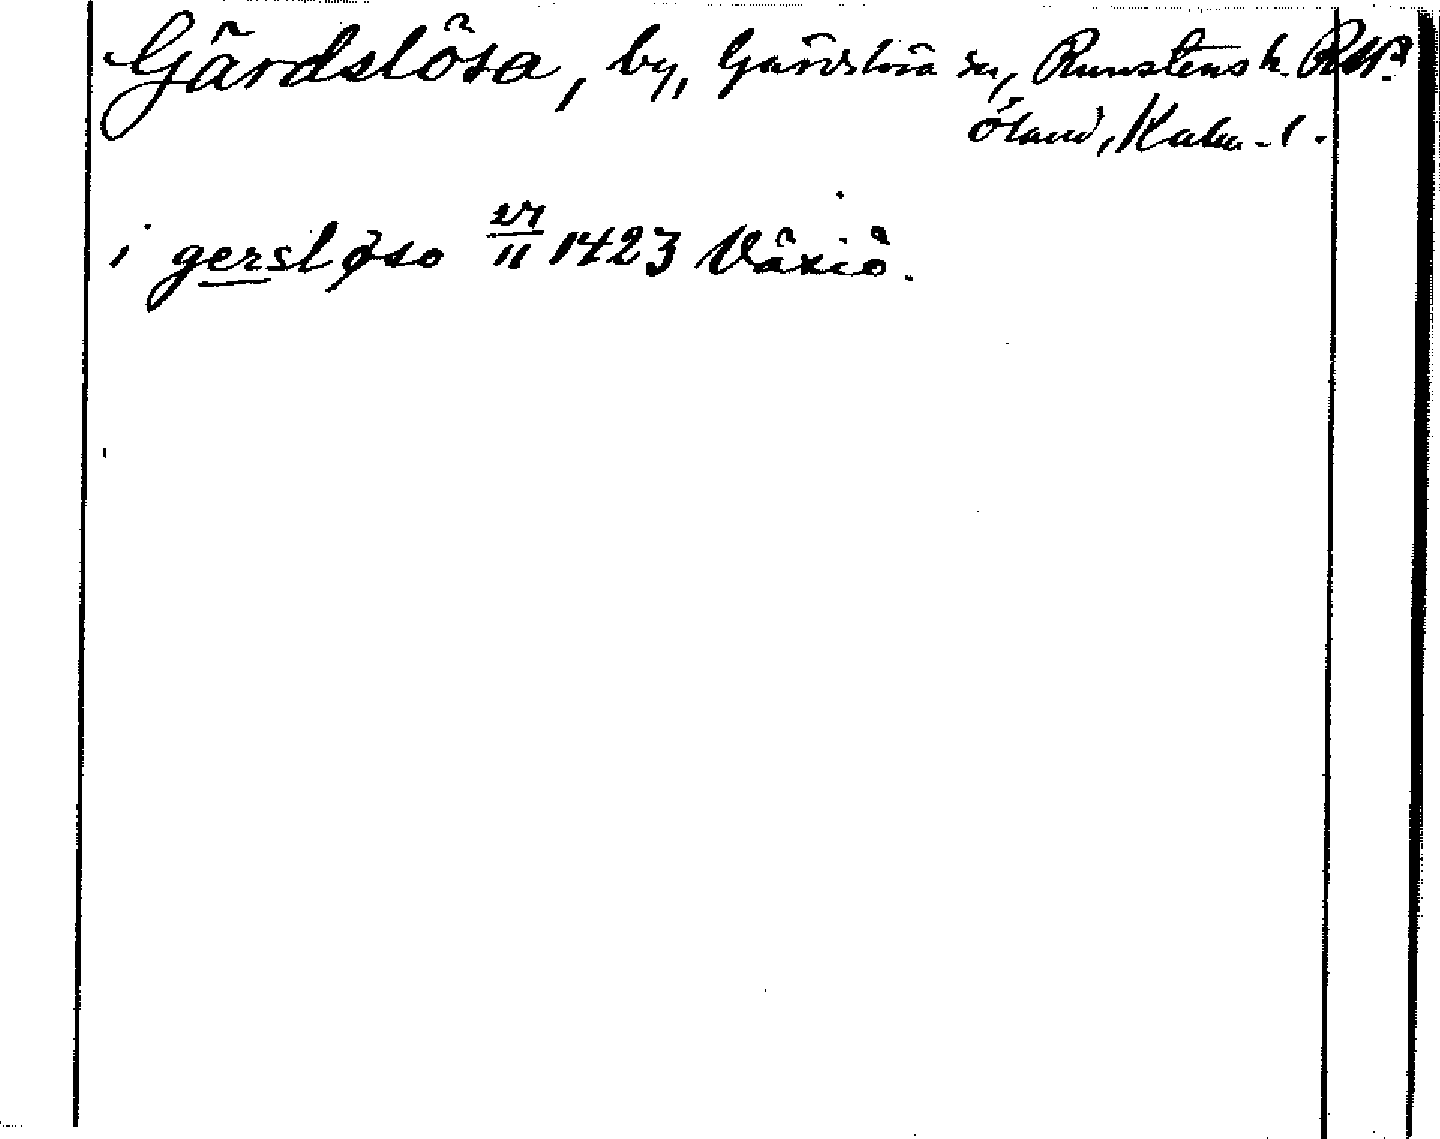 Gärdslösa, by, Gärdslösa sn, Runstens h.
Öland, Kalm. l.
i gersløso 27/11 1423 Växiö.